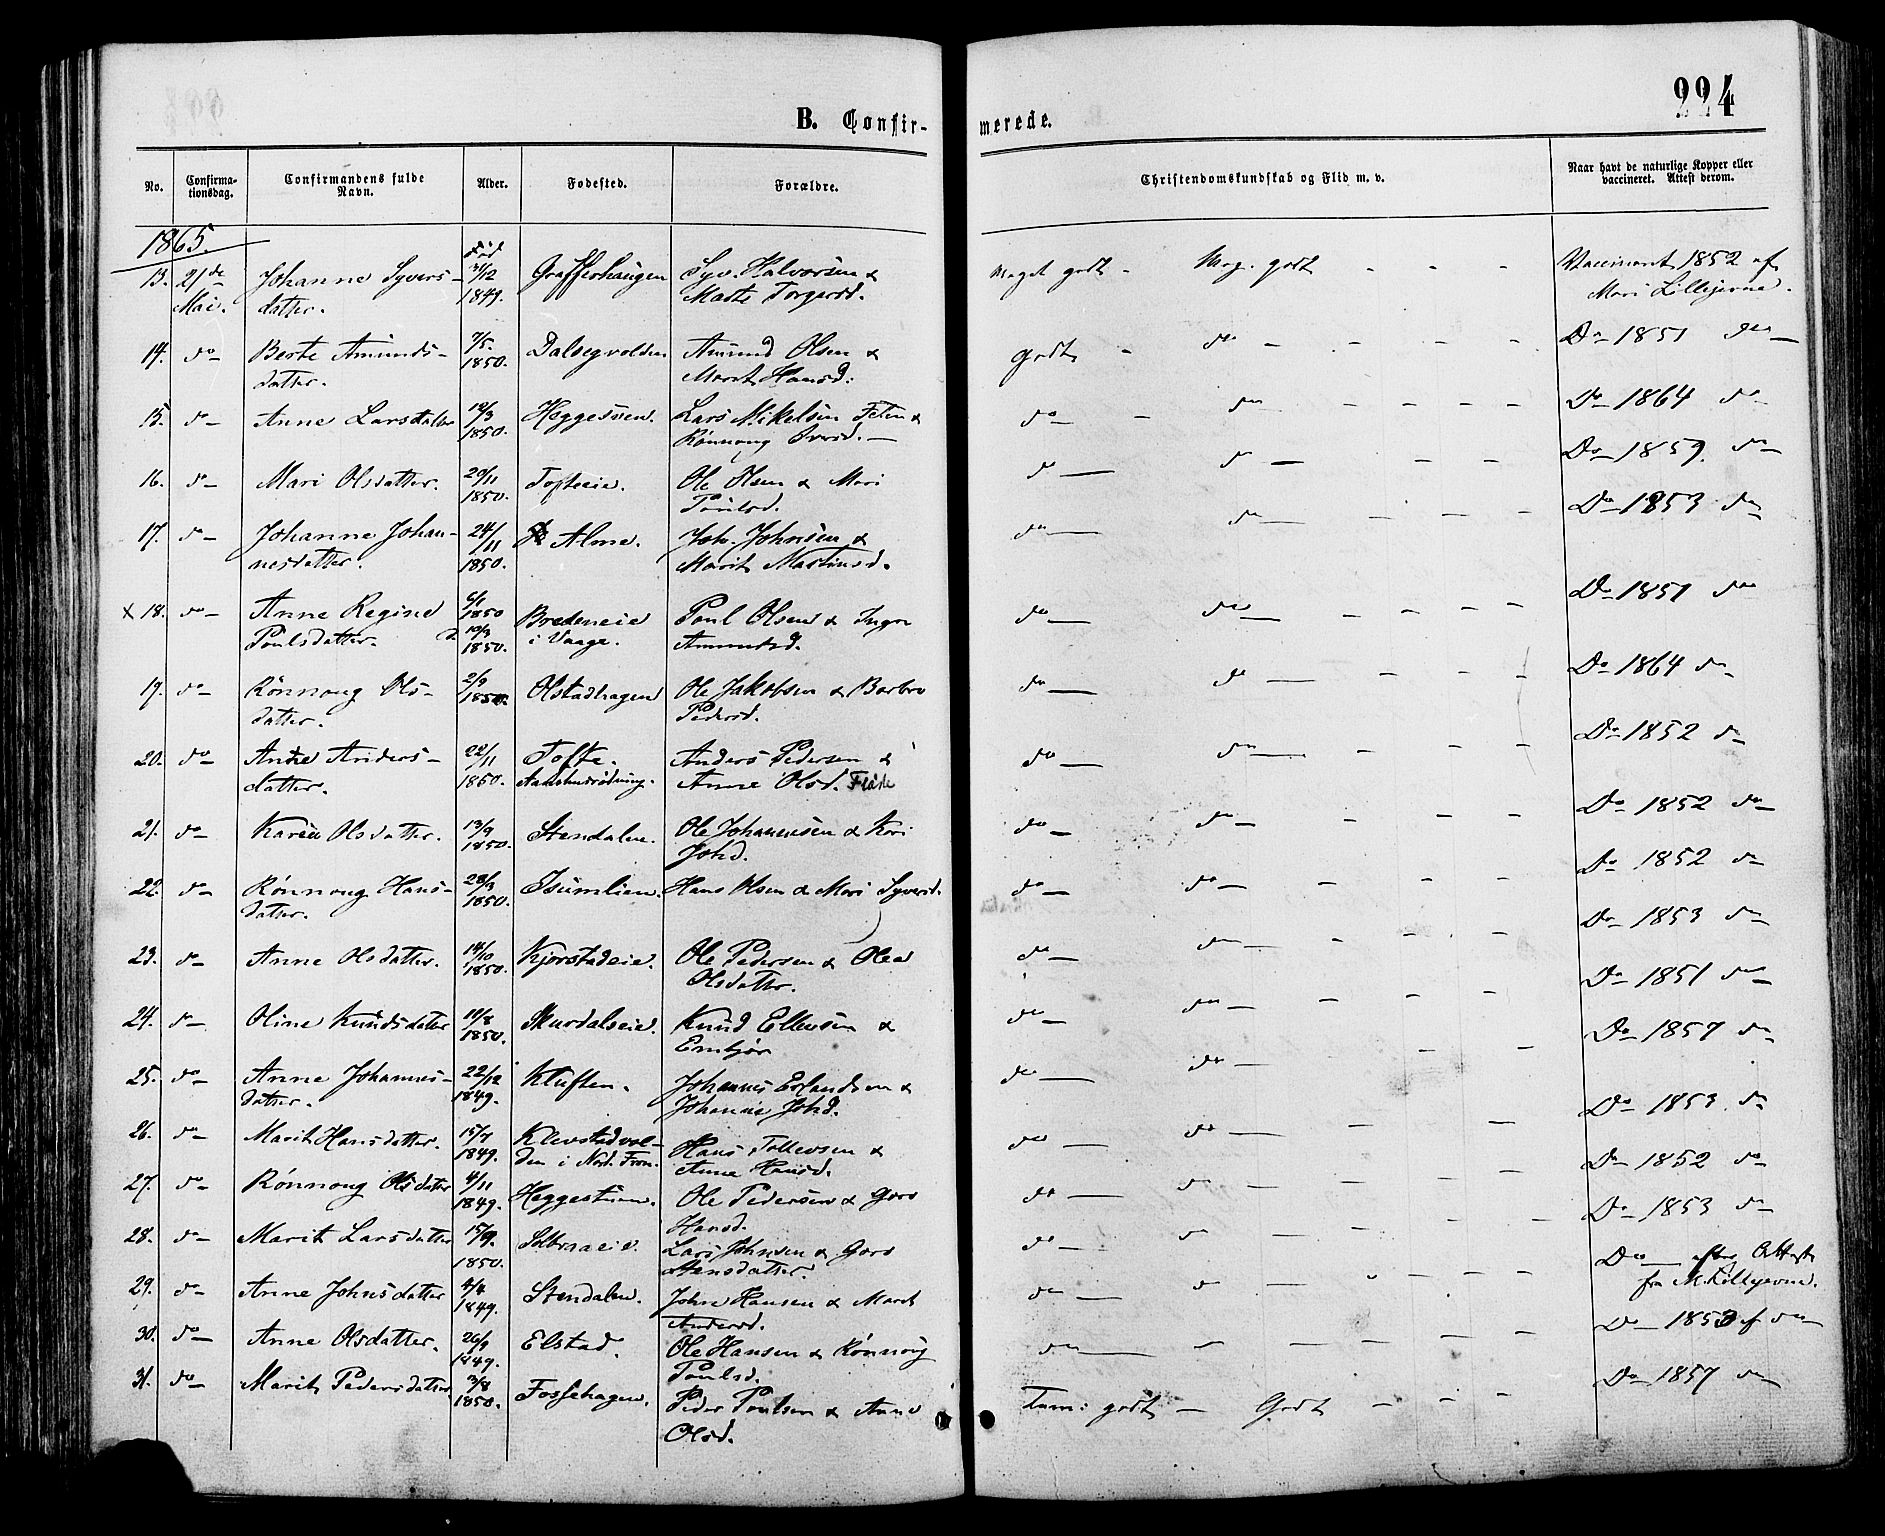 224
B. Confirmerede.
No. Confirmationsdag. Confirmandens fulde Navn. Alder. Fødested. Forældre. Christendomskundskab og Flid m. v. Naar havt de naturlige Kopper eller vaccineret. Attest derom.
1865.
13. 21de Mai. Johanne Syversdatter. Født 31/12 1849. Graffershaugen Syv. Halvorsen & Marte Torgersd. Meget godt - Meg. godt - - - Vaccineret 1852 af Mari Lillejevne.
14. do Berte Amundsdatter. 7/5. 1850. Dalsegvolden Amund Olsen & Marit Hansd: Godt - do - - - - Do 1851 do
15. do Anne Larsdatter 10/3 1850. Heggesøen. Lars Mikelsen & Rønnoug Iversd. do - do - - - - Do 1864 do
16. do Mari Olsdatter. 20/11 1850. Tofteeie. Ole Olsen & Mari Poulsd. do do - - - Do 1859. do
17. do Johanne Johannesdatter. 24/11 1850. Alme. Joh. Johnsen & Marit Mortensd. do do - - - - Do 1853 do
x 18. do Anne Regine Poulsdatter. 6/1 1850 D. 10/3 1850. Bredeneie i Vaage. Poul Olsen & Inger Amundsd. do do - - - - Do 1851 do
19. do Rønnoug Olsdatter. 2/9 1850. Olstadhagen Ole Jakobsen & Barbro Pedersd. do do - - - Do 1864 do
20. do Anne Andersdatter. 22/11 1850. Tofte. Anders Pedersen & Anne Olsd. Fløte do do - - - Do 1852 do
21. do Karen Olsdatter. 13/9 1850. Stendalen. Ole Johannesen & Kari Johd. do do - - - Do 1852 do
22. do Rønnoug Hansdatter. 28/3 1850. Isumlien. Hans Olsen & Mari Syversd. do do - - - Do 1852 do
23. do Anne Olsdatter. 14/10 1850. Kjorstadeie. Ole Pedersen & Olea Olsdatter. do do - - - Do 1853 do
24. do Oline Knudsdatter 10/8 1850. Skurdalseie. Knud Ellevsen & Embjør do do - - - Do 1851 do
25. do Anne Johannesdatter. 22/12 1849. Kluften. Johannes Erlandsen & Johanne Johd. do do - - Do 1857 do
26. do Marit Hansdatter. 15/7 1849. Klevstadvolden i Nord. Fron. Hans Tollevsen & Anne Hansd. do do - - - Do 1853. do
27. do Rønnoug Olsdatter 4/11 1849. Heggestuen. Ole Pedersen & Goro Hansd. do do - - - Do 1852 do
28. do Marit Larsdatter 15/9. 1850. Solbraaeie. Lars Johnsen & Goro Stensdatter. do do - - - Do 1853 do
29. do Anne Johnsdatter 4/4 1849. Stendalen. John Hansen & Marit Andersd. do do - - - - Do efter Attest fra M. Lillejevne.
30. do Anne Olsdatter. 26/9 1849. Elstad. Ole Hansen & Rønnoug Poulsd. do - - - - - Do 1853 af do
31. do Marit Pedersdatter. 3/8 1850. Fossehagen. Peder Poulsen & Anne Olsd. Tem: godt - Godt - - - Do 1857 do